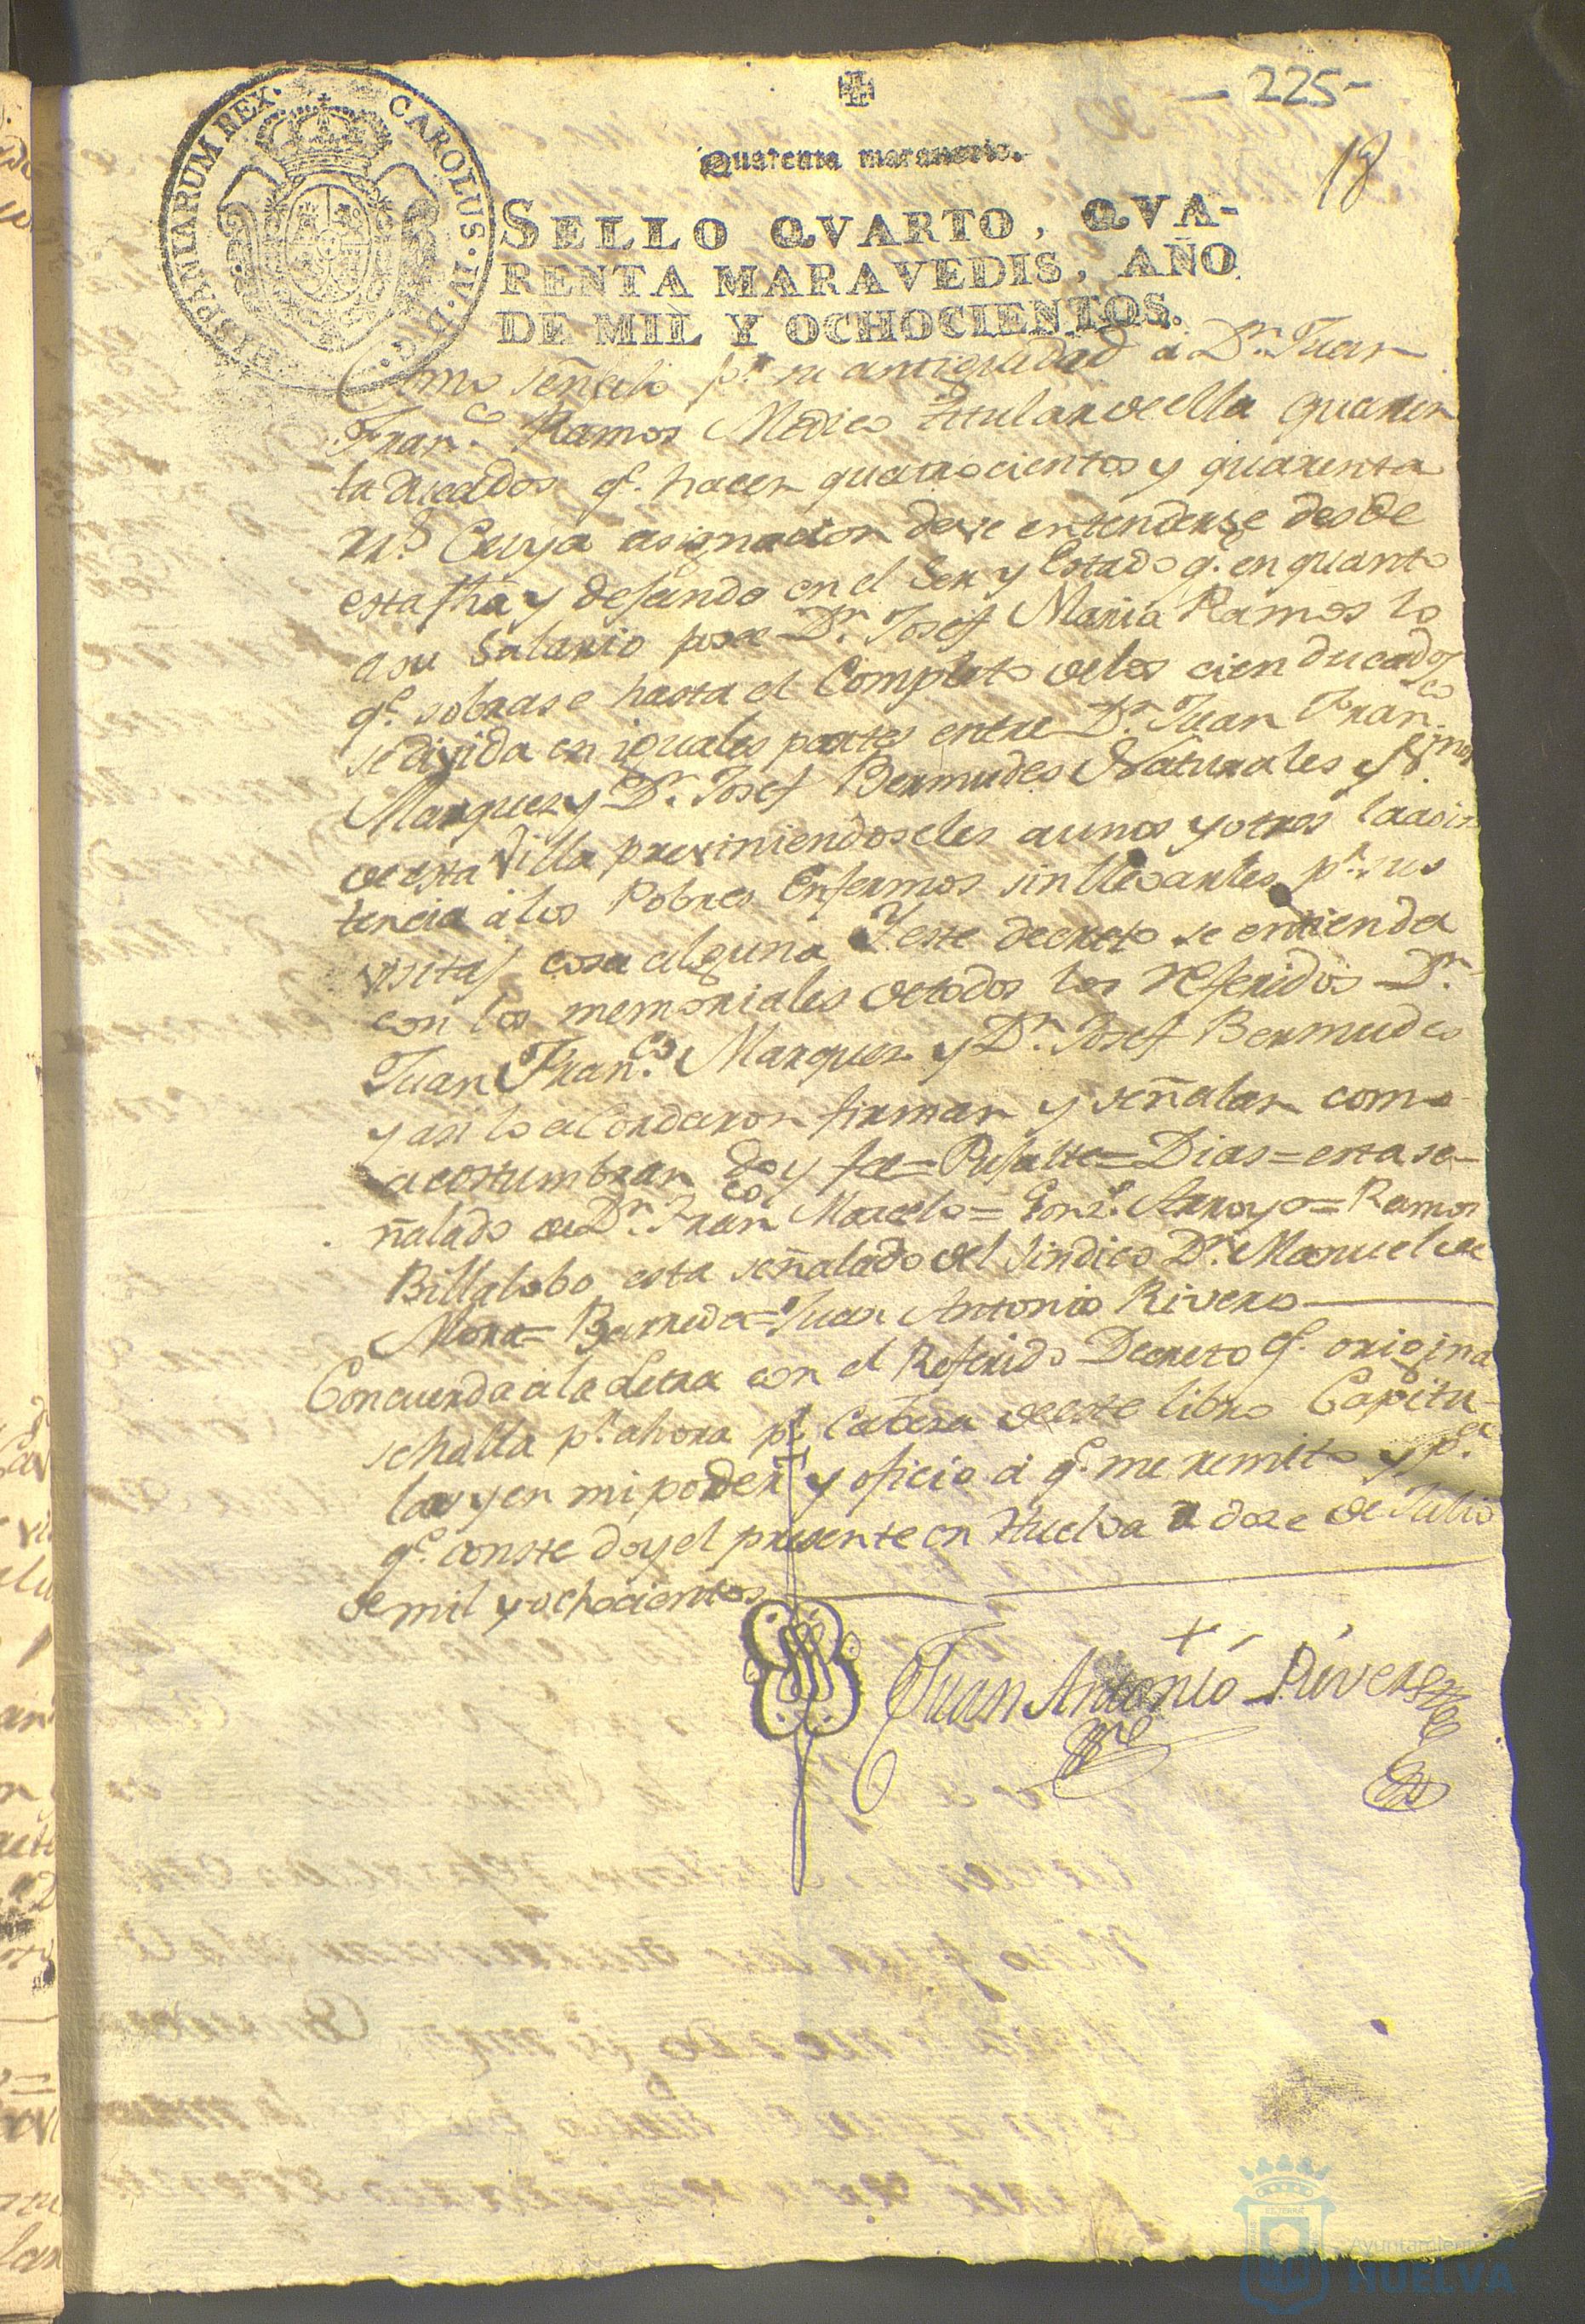 - 225-
18
Quarenta maravedis.
HISPANIARUM REX · CAROLUS · IV · D · G ·
SELLO QVARTO, QVA-
RENTA MARAVEDIS, AÑO
DE MIL Y OCHOCIENTOS.
Como señalò pr. su antiguedad à Dn. Juan
Franco. Ramos Medico titular de ella quaren
ta ducados qe. hacen quatrocientos y quarenta
rrs. Cuya asignacion deve entenderse desde
esta fha y dejando en el Ser y Estado qe. en quanto
a su Salario posee Dn. Josef Maria Ramos lo
qe. sobrase hasta el Completo de los cien ducados
se divida en iguales partes entre Dn. Juan Franco.
Marquez y Dn. Josef Bermudes Naturales y
de esta Villa previniendoseles a unos y otros la asis
tencia à los Pobres Enfermos sin llevarles pr. sus
visitas cosa alguna Y este decreto se entienda
con los memoriales de todos los referidos Dn.
Juan Franco. Marquez y Dn. Josef Bermudes
y asi lo acordaron firman y señalan como
acostumbran doy fee= Pusalte= Dias= esta se-
ñalado de Dn. Franco Marcelo= Gonz. Arroyo= Ramos
Billalobo esta señalado del Sindico Dn. Manuel de
Mora= Barreda= Juan Antonio Rivero
Concuerda a la Letra con el Referido Decreto qe. origina
se halla pr. ahora pr. Cabeza de este libro Capitu-
lar y en mi poder y oficio à qe. me remito y pa.
qe. conste doy el presente en Huelva a doze de Julio
de mil y ochocientos
Juan Antonio Rivero
Ayuntamiento
HUELVA